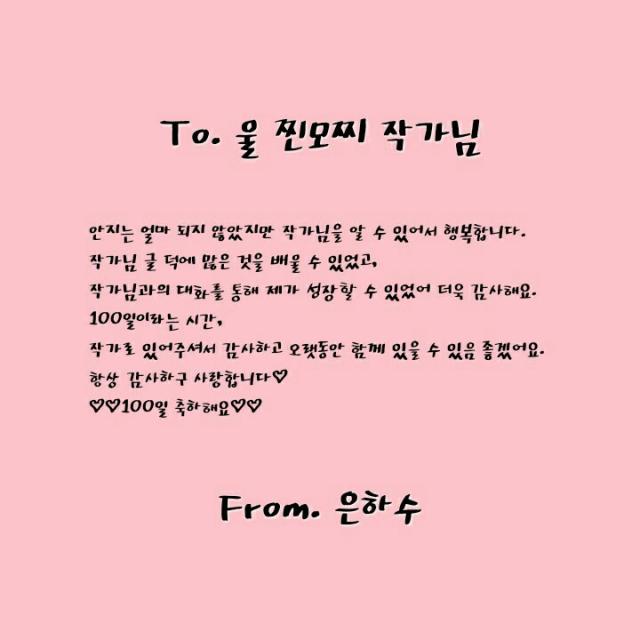 To. 울 찐모찌 작가님
안지는 얼마 되지 않았지만 작가님을 알 수 있어서 행복합니다.
작가님 글 덕에 많은 것을 배울 수 있었고,
작가님과의 대화를 통해 제가 성장할 수 있었어 더욱 감사해요.
100일이라는 시간,
작가로 있어주셔서 감사하고 오랫동안 함께 있을 수 있음 좋겠어요.
항상 감사하구 사랑합니다♡
♡♡100일 축하해요♡♡
From. 은하수